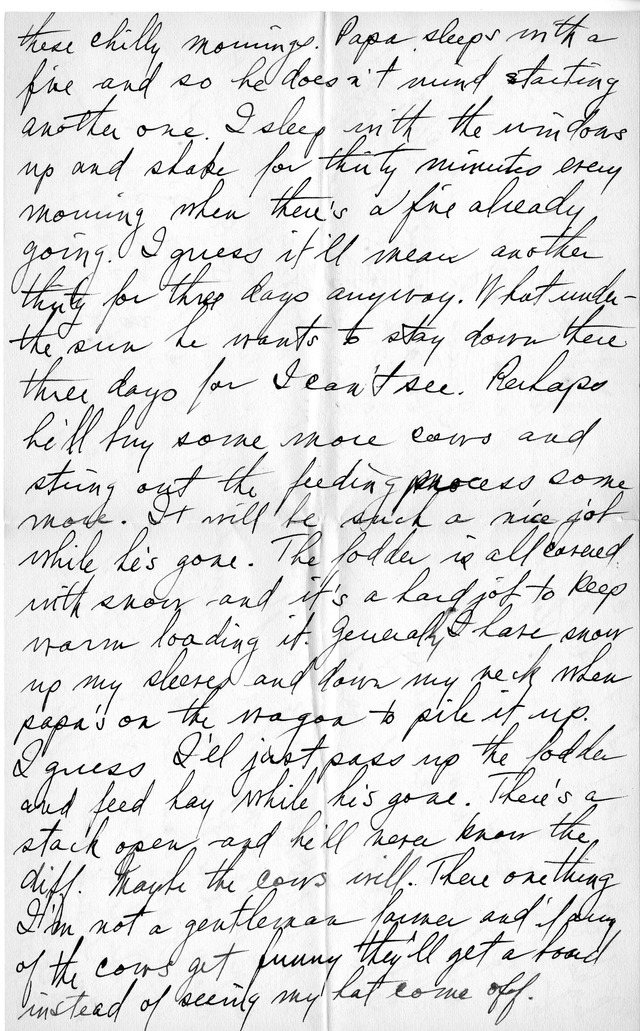 these chilly mornings. Papa sleeps with a
fire and so he doesn't mind starting
another one. I sleep with the windows
up and shake for thirty minutes every
morning when there's a fire already
going. I guess it'll mean another
thirty for three days anyway. What under-
the sun he wants to stay down there
three days for I can't see. Perhaps
he'll buy some more cows and
string out the feeding process some
more. It will be such a nice job
while he's gone. The fodder is all covered
with snow and it's a hard job to keep
warm loading it. Generally I have snow
up my sleeves and down my neck when
papa's on the wagon to pile it up.
I guess I'll just pass up the fodder
and feed hay while he's gone. There's a
stack open and he'll never know the
diff. Maybe the cows will. There one thing
I'm not a gentleman farmer and if any
of the cows get funny they'll get a board
instead of seeing my hat come off.